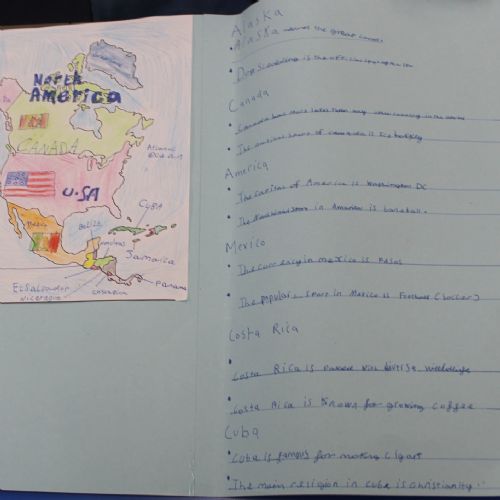 North
America
CANADA
U.SA
Mexico
Belize
CyBA
Jamaica
Panama
Elsalvador
nicaragua
costarica
Alaska
• Alaska means the great
• Dog is the official
Canada
• Canada has more lakes than any other country in the world
• The national sport of Canada is ice hockey
America
• The capital of America is Washington DC
• The National Sport in America is baseball.
Mexico
• The currency in mexico is Pesos
• The popular sport in Mexico is Football (Soccer)
Costa Rica
• Costa Rica is packed with diverse wildlife
• Costa Rica is known for growing coffee
Cuba
• Cuba is famous for making cigars
• The main religion in Cuba is christianity.